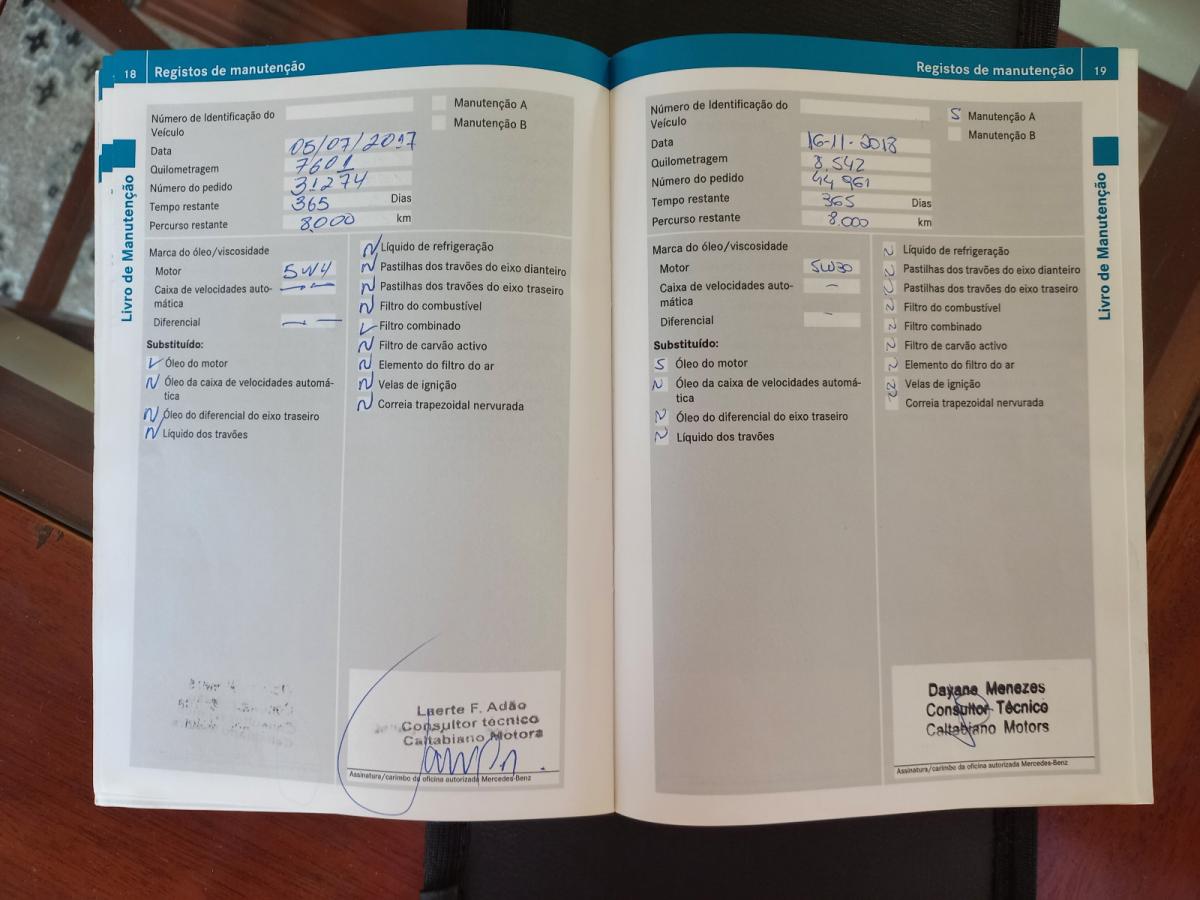 18 Registos de manutenção
Livro de Manutenção
Número de Identificação do
Veículo
Manutenção A
Manutenção B
Data 05/07/2017
Quilometragem 7601
Número do pedido 31274
Tempo restante 365 Dias
Percurso restante 8.000 km
Marca do óleo/viscosidade
Motor 5W4
Caixa de velocidades auto-
mática
Diferencial
Substituído:
Óleo do motor
N Óleo da caixa de velocidades automá-
tica
N Óleo do diferencial do eixo traseiro
N Líquido dos travões
N Líquido de refrigeração
N Pastilhas dos travões do eixo dianteiro
N Pastilhas dos travões do eixo traseiro
N Filtro do combustível
Filtro combinado
N Filtro de carvão activo
N Elemento do filtro do ar
N Velas de ignição
N Correia trapezoidal nervurada
Laerte F. Adão
Consultor técnico
Caltabiano Motors
Assinatura/carimbo da oficina autorizada Mercedes-Benz
Registos de manutenção 19
Livro de Manutenção
Número de Identificação do
Veículo
S Manutenção A
Manutenção B
Data 16-11-2018
Quilometragem 8.542
Número do pedido 44961
Tempo restante 365 Dias
Percurso restante 8.000 km
Marca do óleo/viscosidade
Motor 5W30
Caixa de velocidades auto- -
mática
Diferencial -
Substituído:
S Óleo do motor
N Óleo da caixa de velocidades automá-
tica
N Óleo do diferencial do eixo traseiro
N Líquido dos travões
N Líquido de refrigeração
N Pastilhas dos travões do eixo dianteiro
N Pastilhas dos travões do eixo traseiro
N Filtro do combustível
N Filtro combinado
N Filtro de carvão activo
N Elemento do filtro do ar
N Velas de ignição
Correia trapezoidal nervurada
Dayane Menezes
Consultor Técnico
Caltabiano Motors
Assinatura/carimbo da oficina autorizada Mercedes-Benz